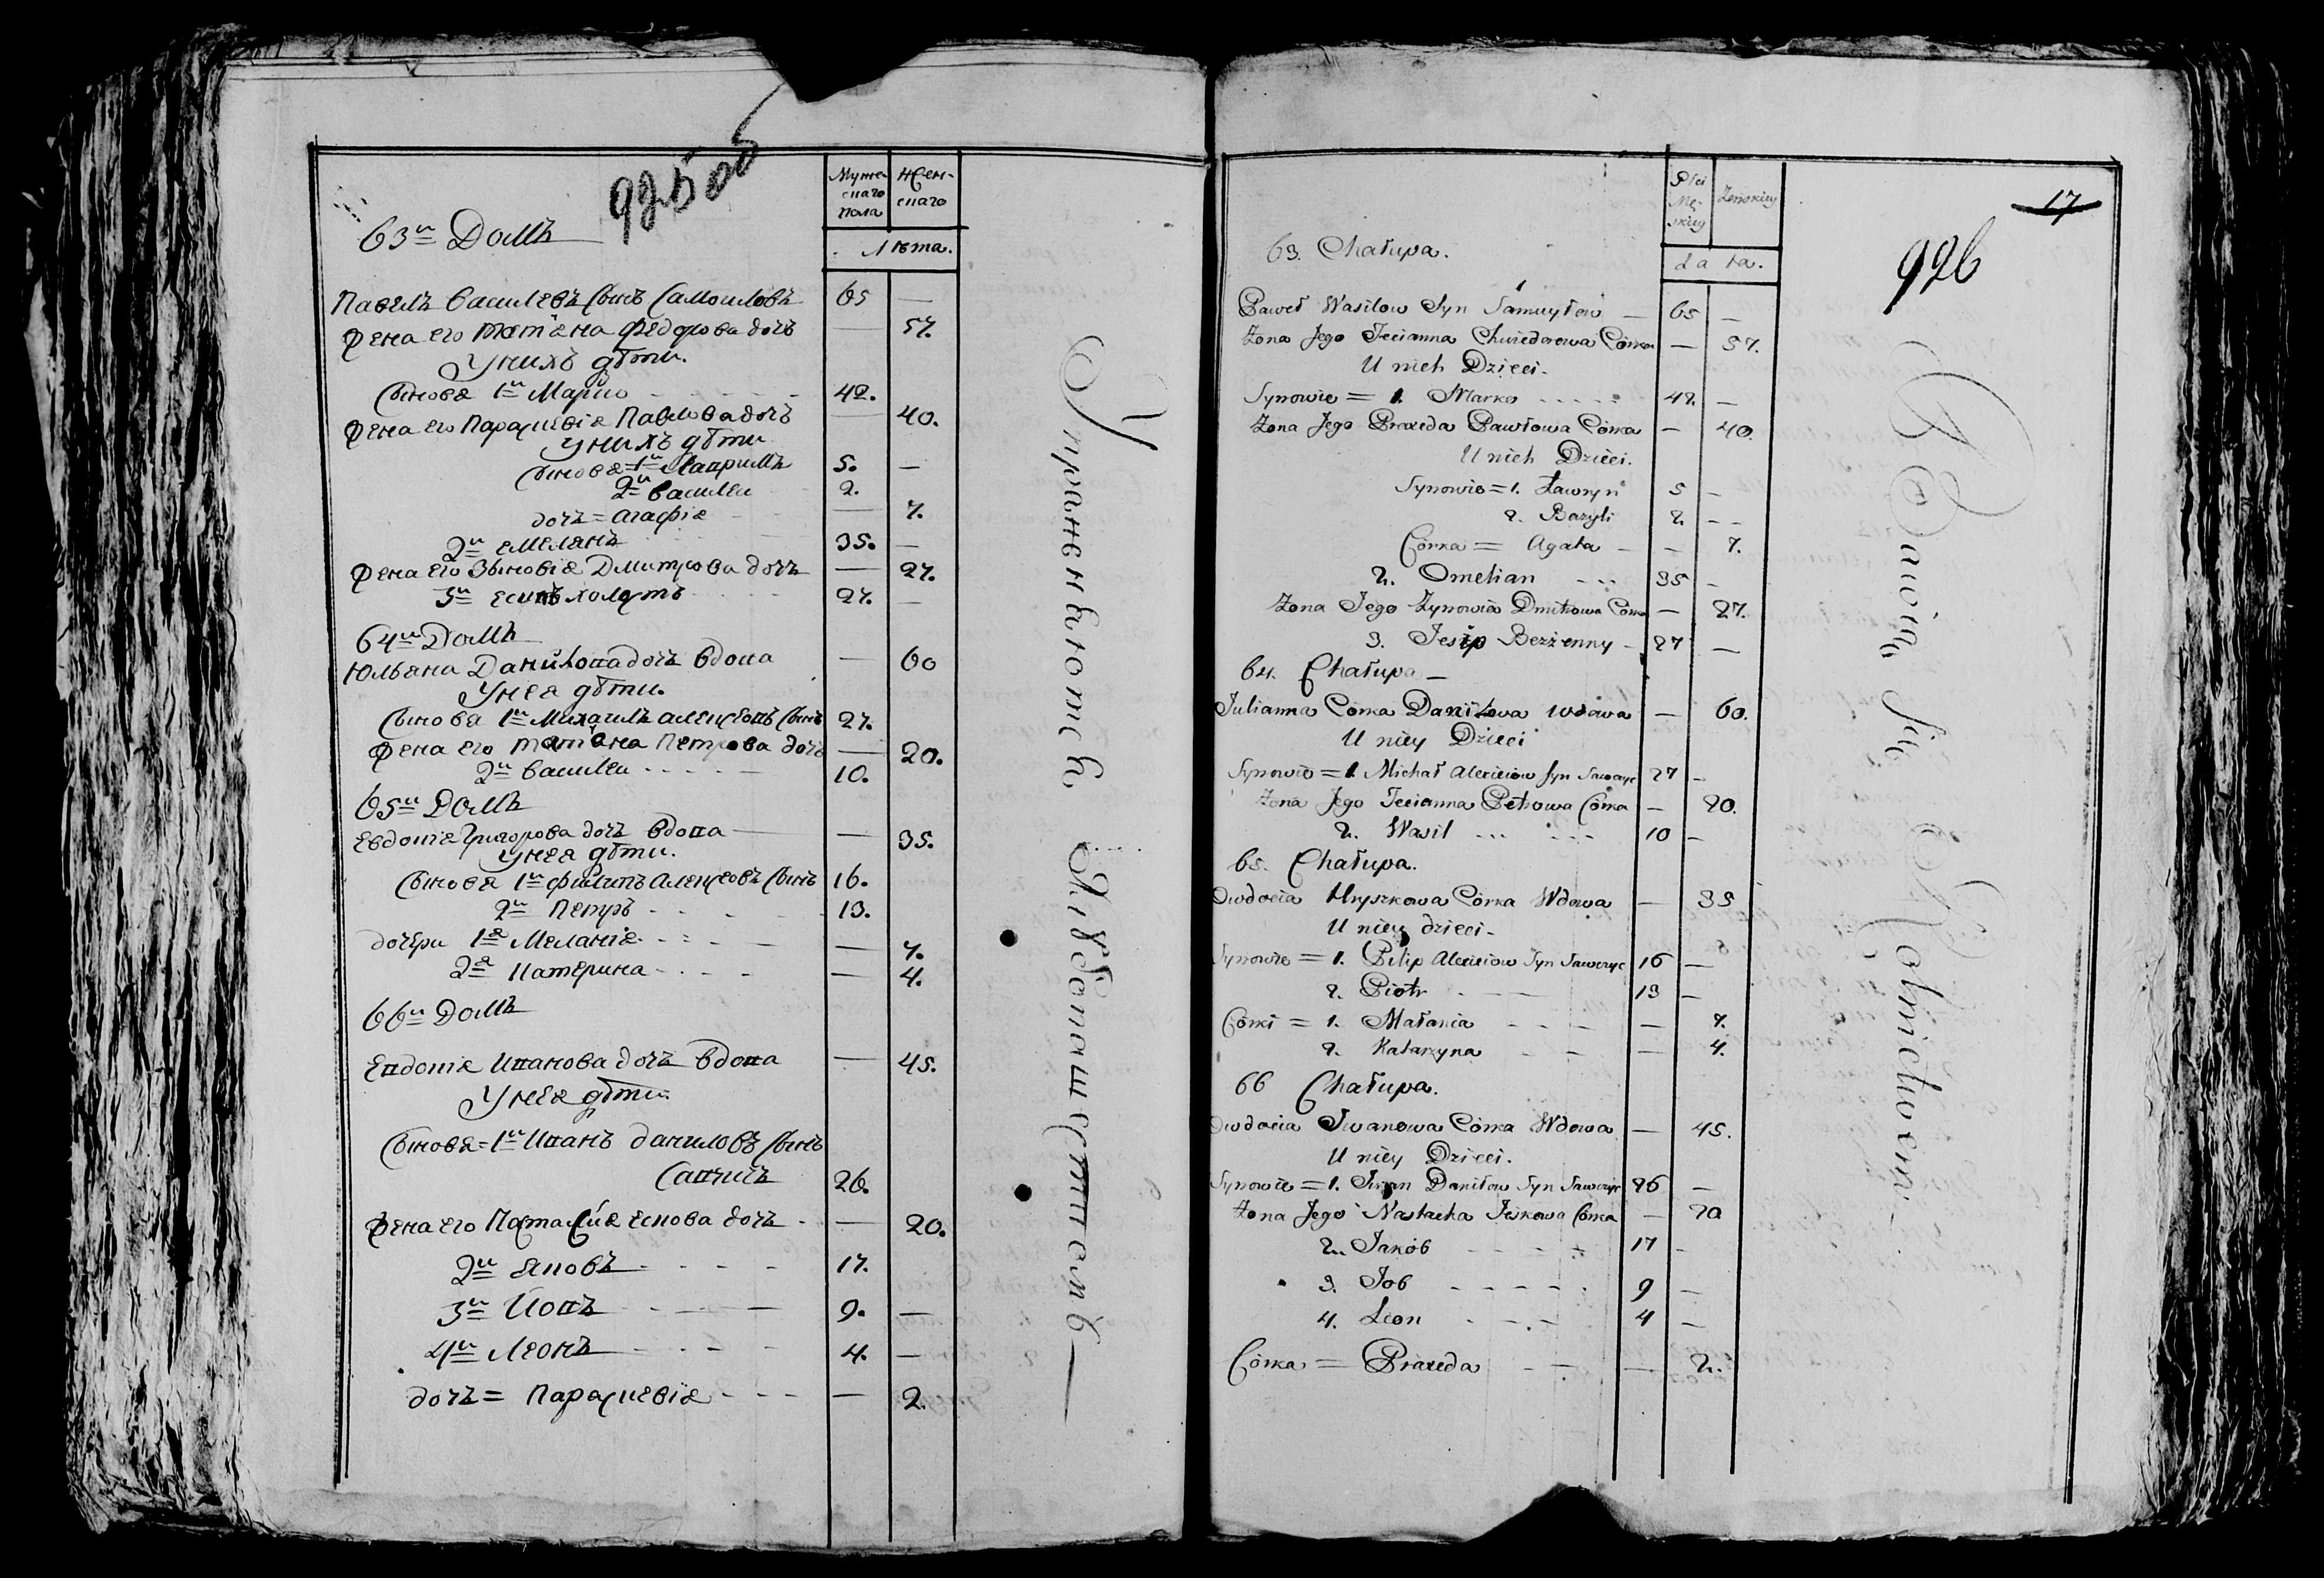 925 об
Муже-
скаго
пола
Жен-
скаго
Лѣта.
63й Домъ
Павелъ Василевъ сынъ Самоиловъ 65 —
Жена его Татіяна Федорова дочь — 57.
У нихъ дѣти.
Сыновя 1й Марко 42.
Жена его Параскевія Павлова дочь — 40.
У нихъ дѣти
Сыновя = 1й Лаврынъ 5. —
2й Василеи 2.
дочь = Агафія — 7.
2й Емелянъ 35. —
Жена его Зыновія Дмитрова дочь — 27.
3й Есипъ холостъ 27. —
64й Домъ
Юльяна Данилова дочь вдова — 60
У нея дѣти.
Сыновя 1й Михаилъ Алексеевъ сынъ 27.
Жена его Татіана Петрова дочь — 20.
2й Василеи 10.
65й Домъ
Евдокія Григорова дочь вдова — 35.
У нея дѣти.
Сыновя 1й Филипъ Алексеевъ сынъ 16.
2й Петръ 13.
дочери 1я Меланія — 7.
2я Катерина — 4.
66й Домъ
Евдокія Иванова дочь вдова — 45.
У нея дѣти
Сыновя = 1й Иванъ Даниловъ сынъ
Савчикъ 26.
Жена его Настасія Ескова дочь — 20.
2й Яковъ 17.
3й Иовъ 9. —
4й Леонъ 4. —
дочь = Параскевія — 2.
Упражняются Хлѣбопашествомъ
17
926
Płci
Mę-
skiey
Żenskiey
Lata.
63. Chałupa.
Paweł Wasilow Syn Samuyłow — 65 —
Żona Jego Tecianna Chwiedorowa Córka — 57.
U nich Dzieci.
Synowie = 1. Marko 42. —
Żona Jego Praxeda Pawłowa Córka — 40.
U nich Dzieci.
Synowie = 1. Ławryn 5 —
2. Bazyli 2. —
Córka = Agata — 7.
2. Omelian 35 —
Żona Jego Zynowia Dmitrowa Córka — 27.
3. Jesip Bezżenny 27 —
64. Chałupa
Julianna Córka Daniłowa wdowa — 60.
U niey Dzieci
Synowie = 1. Michał Alexieiow syn Sawczyc 27 —
Żona Jego Tecianna Petrowa Córka — 20.
2. Wasil 10 —
65. Chałupa.
Owdocia Hryszkowa Córka Wdowa — 35
U niey dzieci
Synowie = 1. Pilip Alexieiow Syn Sawczyc 16 —
2. Piotr 13 —
Córki = 1. Małania — 7.
2. Katarzyna — 4.
66 Chałupa.
Owdocia Iwanowa Córka Wdowa — 45.
U niey Dzieci.
Synowie = 1. Iwan Daniłow Syn Sawczyc 26 —
Żona Jego Nastacha Jeskowa Córka — 20
2. Jakób 17 —
3. Job 9 —
4. Leon 4 —
Córka = Praxeda — 2.
Bawią się Rolnictwem